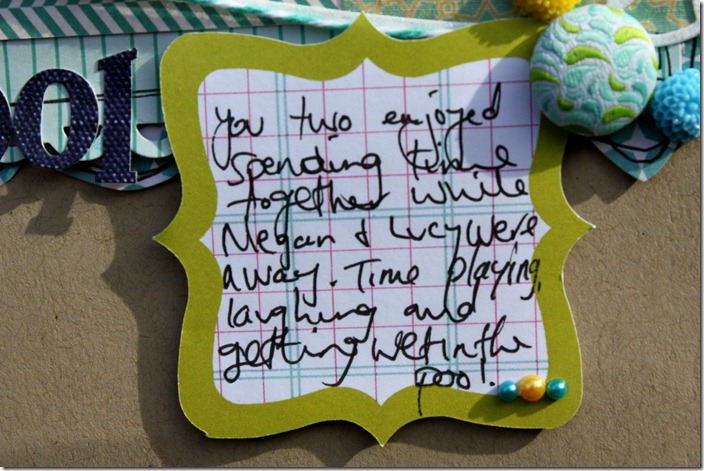 ool
you two enjoyed
spending time
together while
Megan & Lucy were
away. Time playing,
laughing and
getting wet in the
pool.